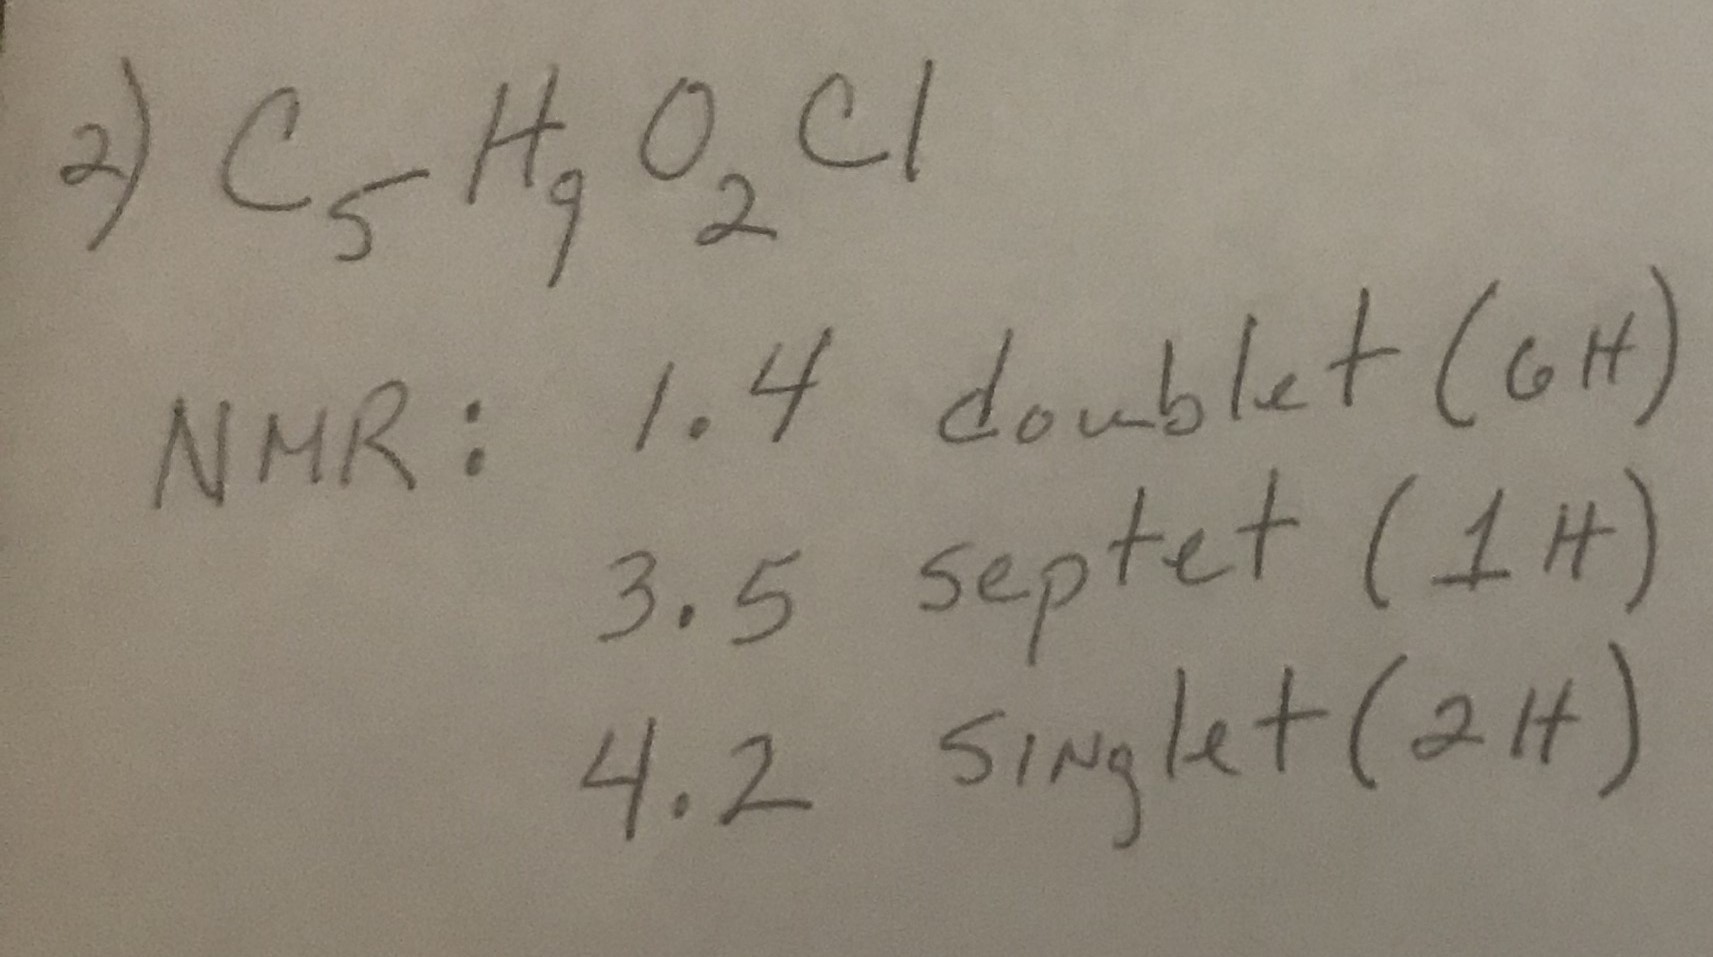 2) C₅H₉O₂Cl
NMR: 1.4 doublet (6H)
3.5 septet (1H)
4.2 singlet (2H)